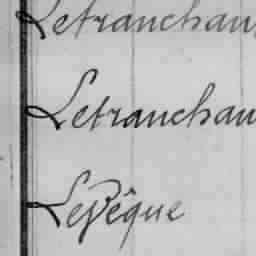 Letranchan
Letranchan
Levêque